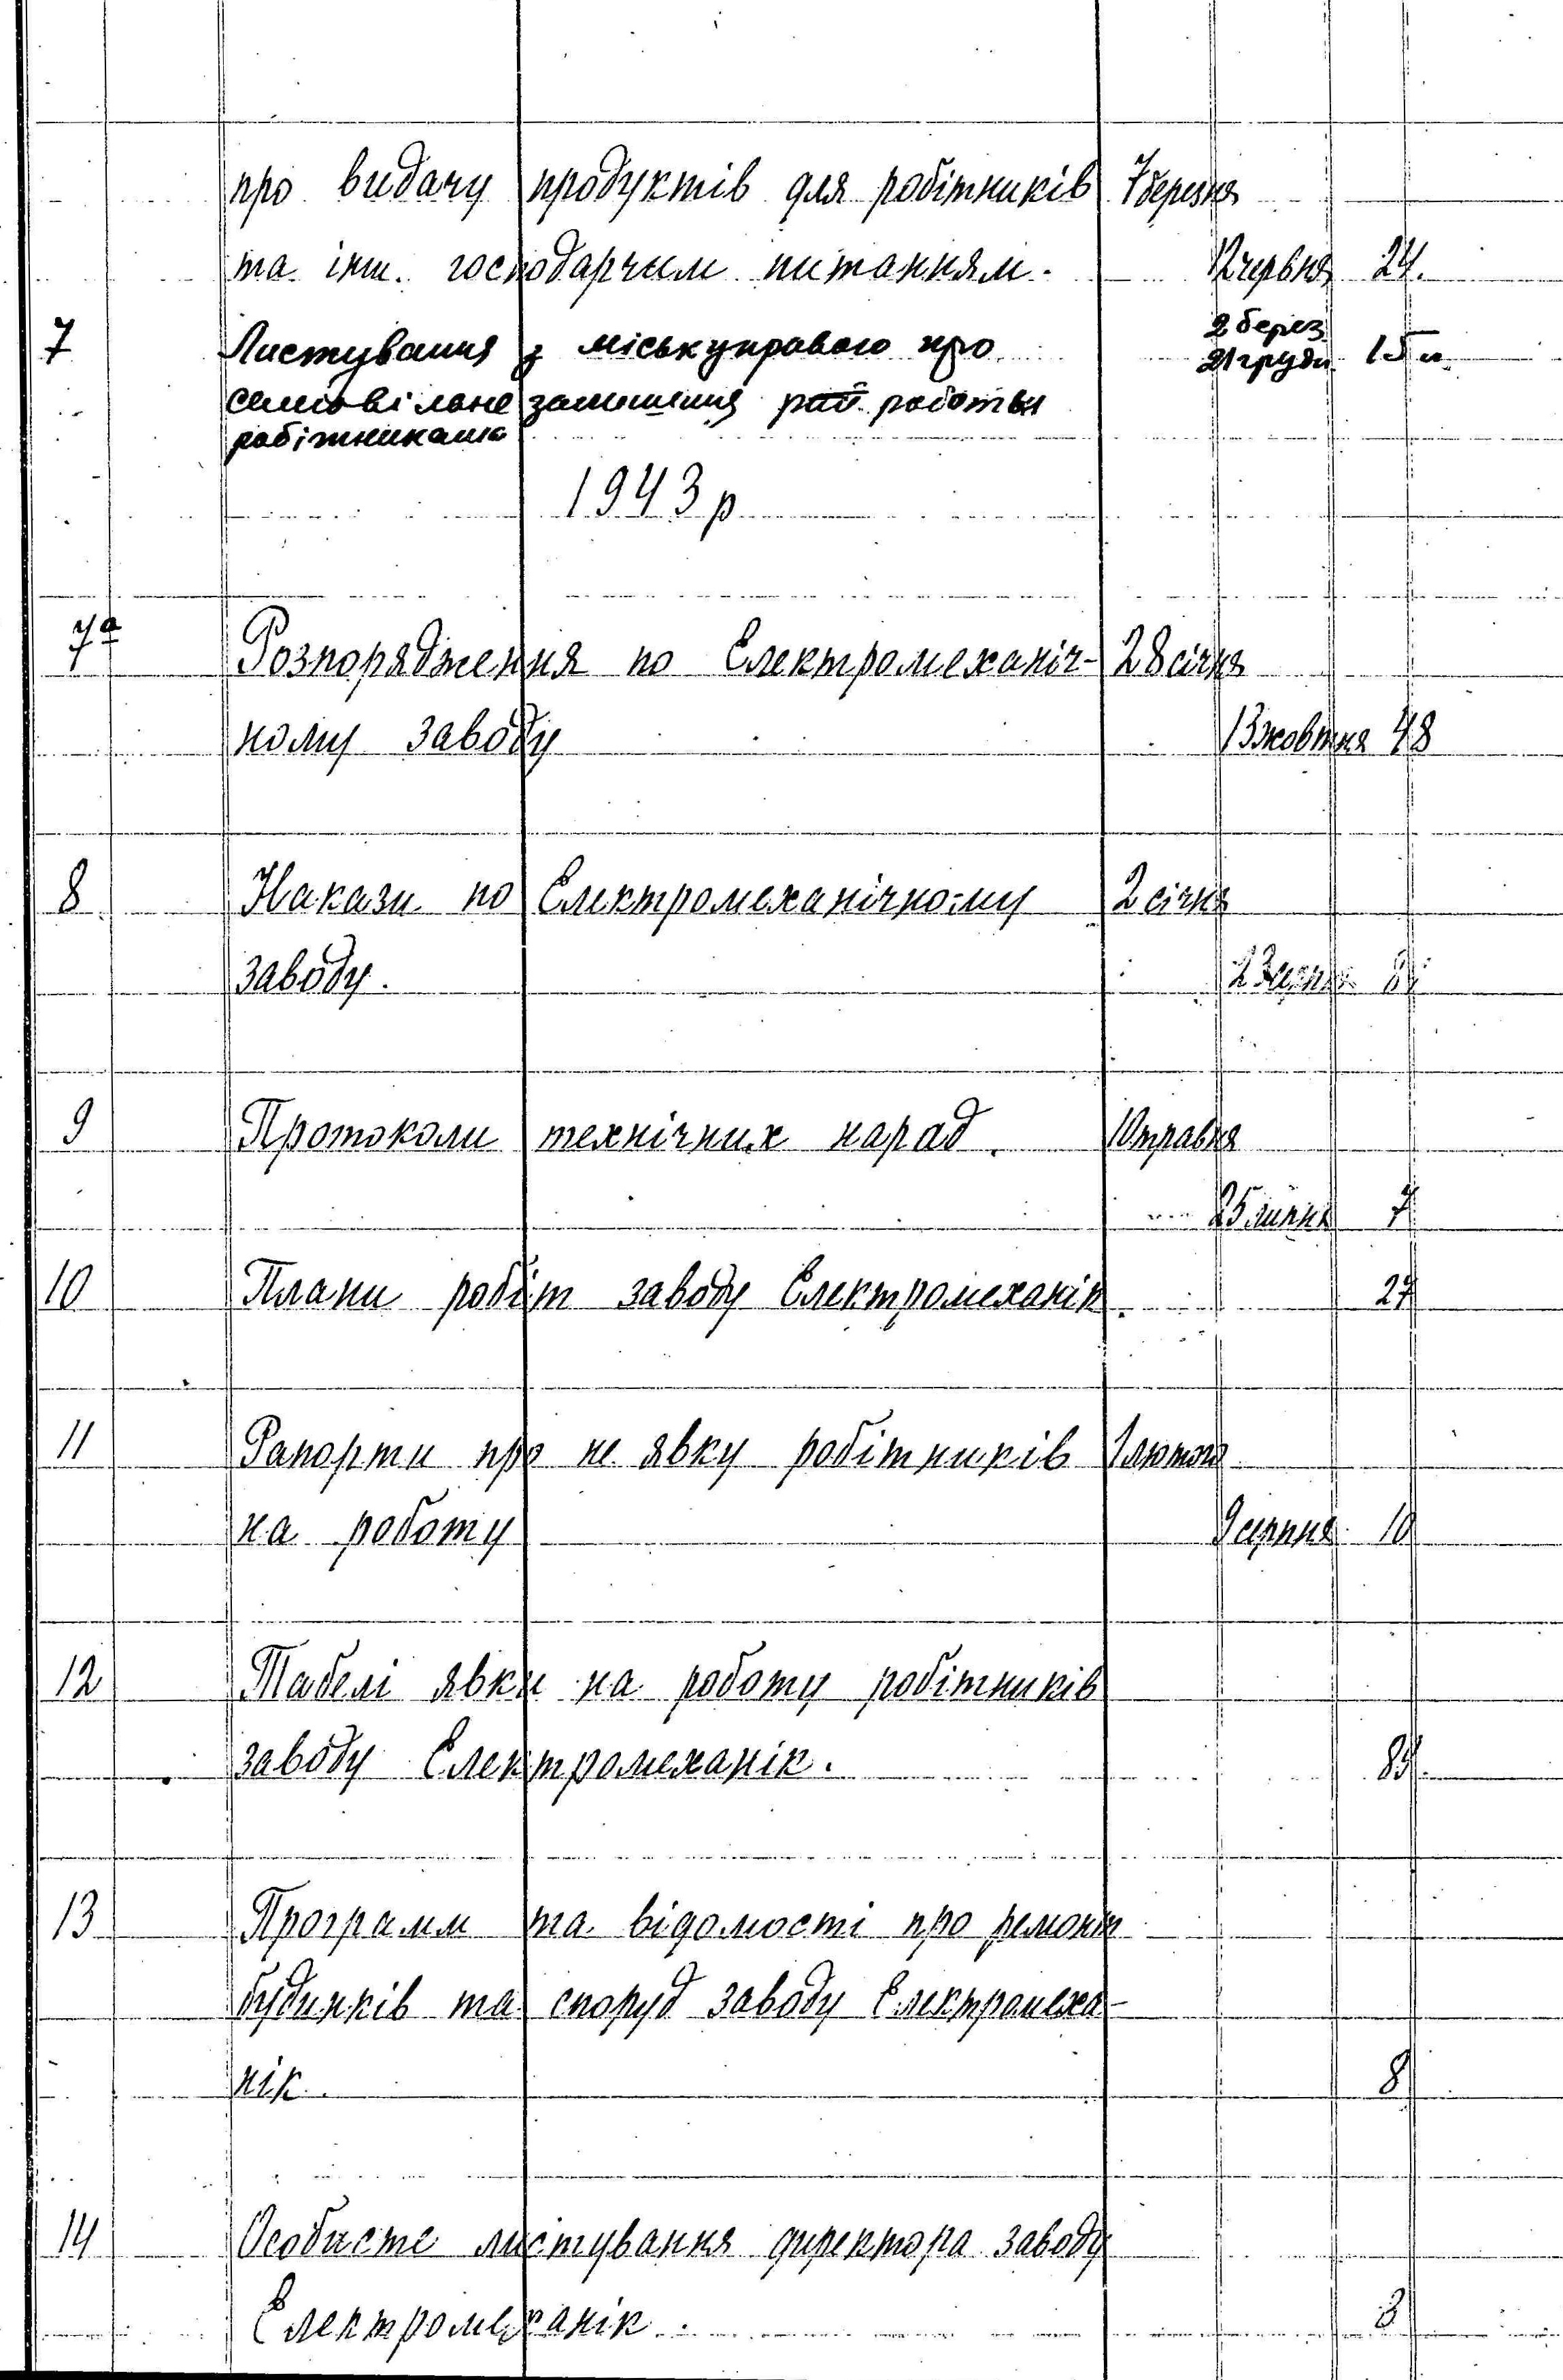 про видачу продуктів для робітників 7 березня
та інш. господарчим питанням. 12 червня 24.
7 Листування з міськуправою про 2 берез 21 грудн 15
самовільне залишення роботи
робітниками
1943 р
7а Розпорядження по Електромеханіч- 28 січня
ному заводу 13 жовтня 48
8 Накази по Електромеханічному 2 січня
заводу.
9 Протоколи технічних нарад. 10 травня
25 липня 7
10 Плани робіт заводу Електромеханік. 27
11 Рапорти про не явку робітників 1 лютого
на роботу 9 серпня 10
12 Табелі явки на роботу робітників
заводу Електромеханік.
13 Програми та відомості про ремонт
будинків та споруд заводу Електромеха-
нік. 8
14 Особисте листування директора заводу
Електромеханік. 3